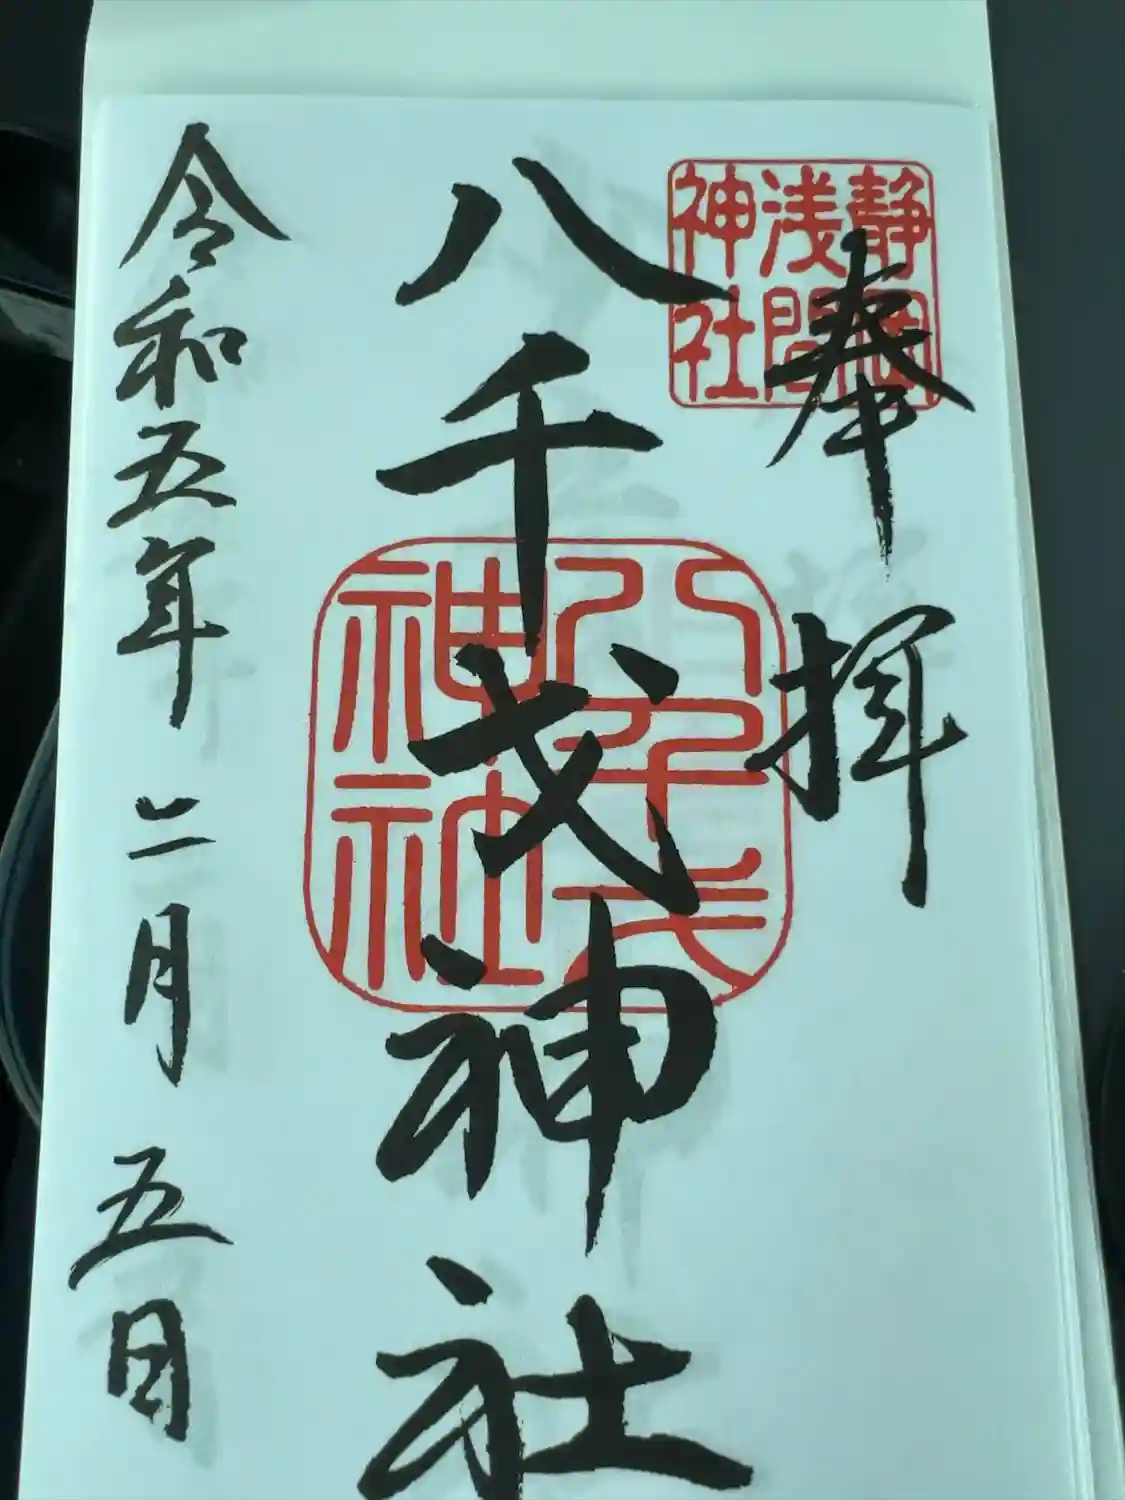 奉拝
静岡
浅間
神社
八千戈神社
八千戈
神社
令和五年二月五日